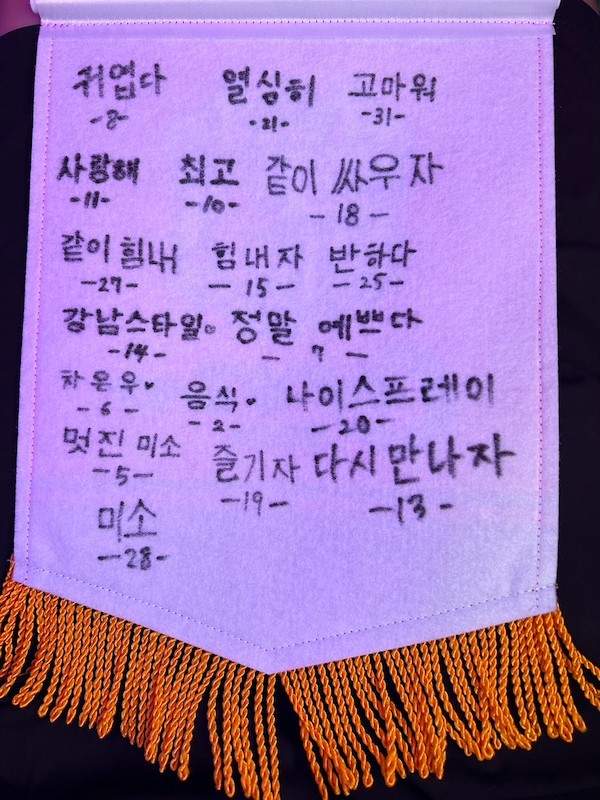 귀엽다 열심히 고마워
-8- -21- -31-
사랑해 최고 같이 싸우자
-11- -10- -18-
같이 힘내 힘내자 반하다
-27- -15- -25-
강남스타일♥ 정말 예쁘다
-14- -7-
차은우♥ 음식♥ 나이스프레이
-6- -2- -20-
멋진 미소 즐기자 다시 만나자
-5- -19- -13-
미소
-28-